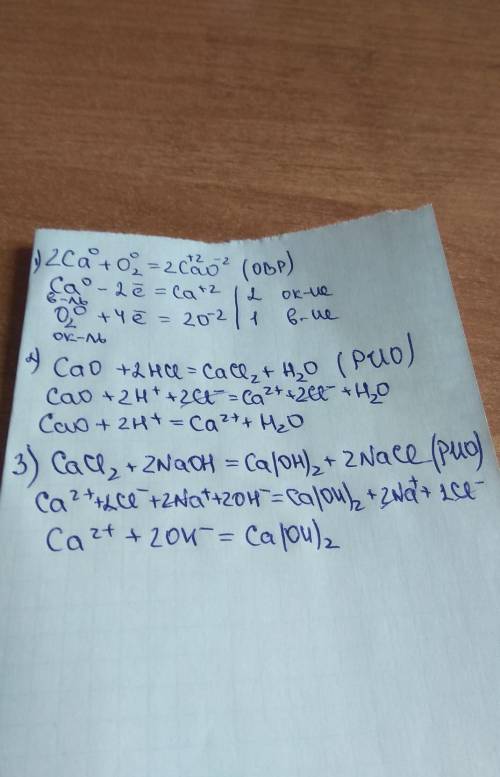 1) 2Ca⁰ + O₂⁰ = 2Ca⁺²O⁻² (ОВР)
Ca⁰ - 2ē = Ca⁺² | 2 ок-ие
в-ль
O₂⁰ + 4ē = 2O⁻² | 1 в-ие
ок-ль
2) CaO + 2HCl = CaCl₂ + H₂O (РИО)
CaO + 2H⁺ + 2Cl⁻ = Ca²⁺ + 2Cl⁻ + H₂O
CaO + 2H⁺ = Ca²⁺ + H₂O
3) CaCl₂ + 2NaOH = Ca(OH)₂ + 2NaCl (РИО)
Ca²⁺ + 2Cl⁻ + 2Na⁺ + 2OH⁻ = Ca(OH)₂ + 2Na⁺ + 2Cl⁻
Ca²⁺ + 2OH⁻ = Ca(OH)₂